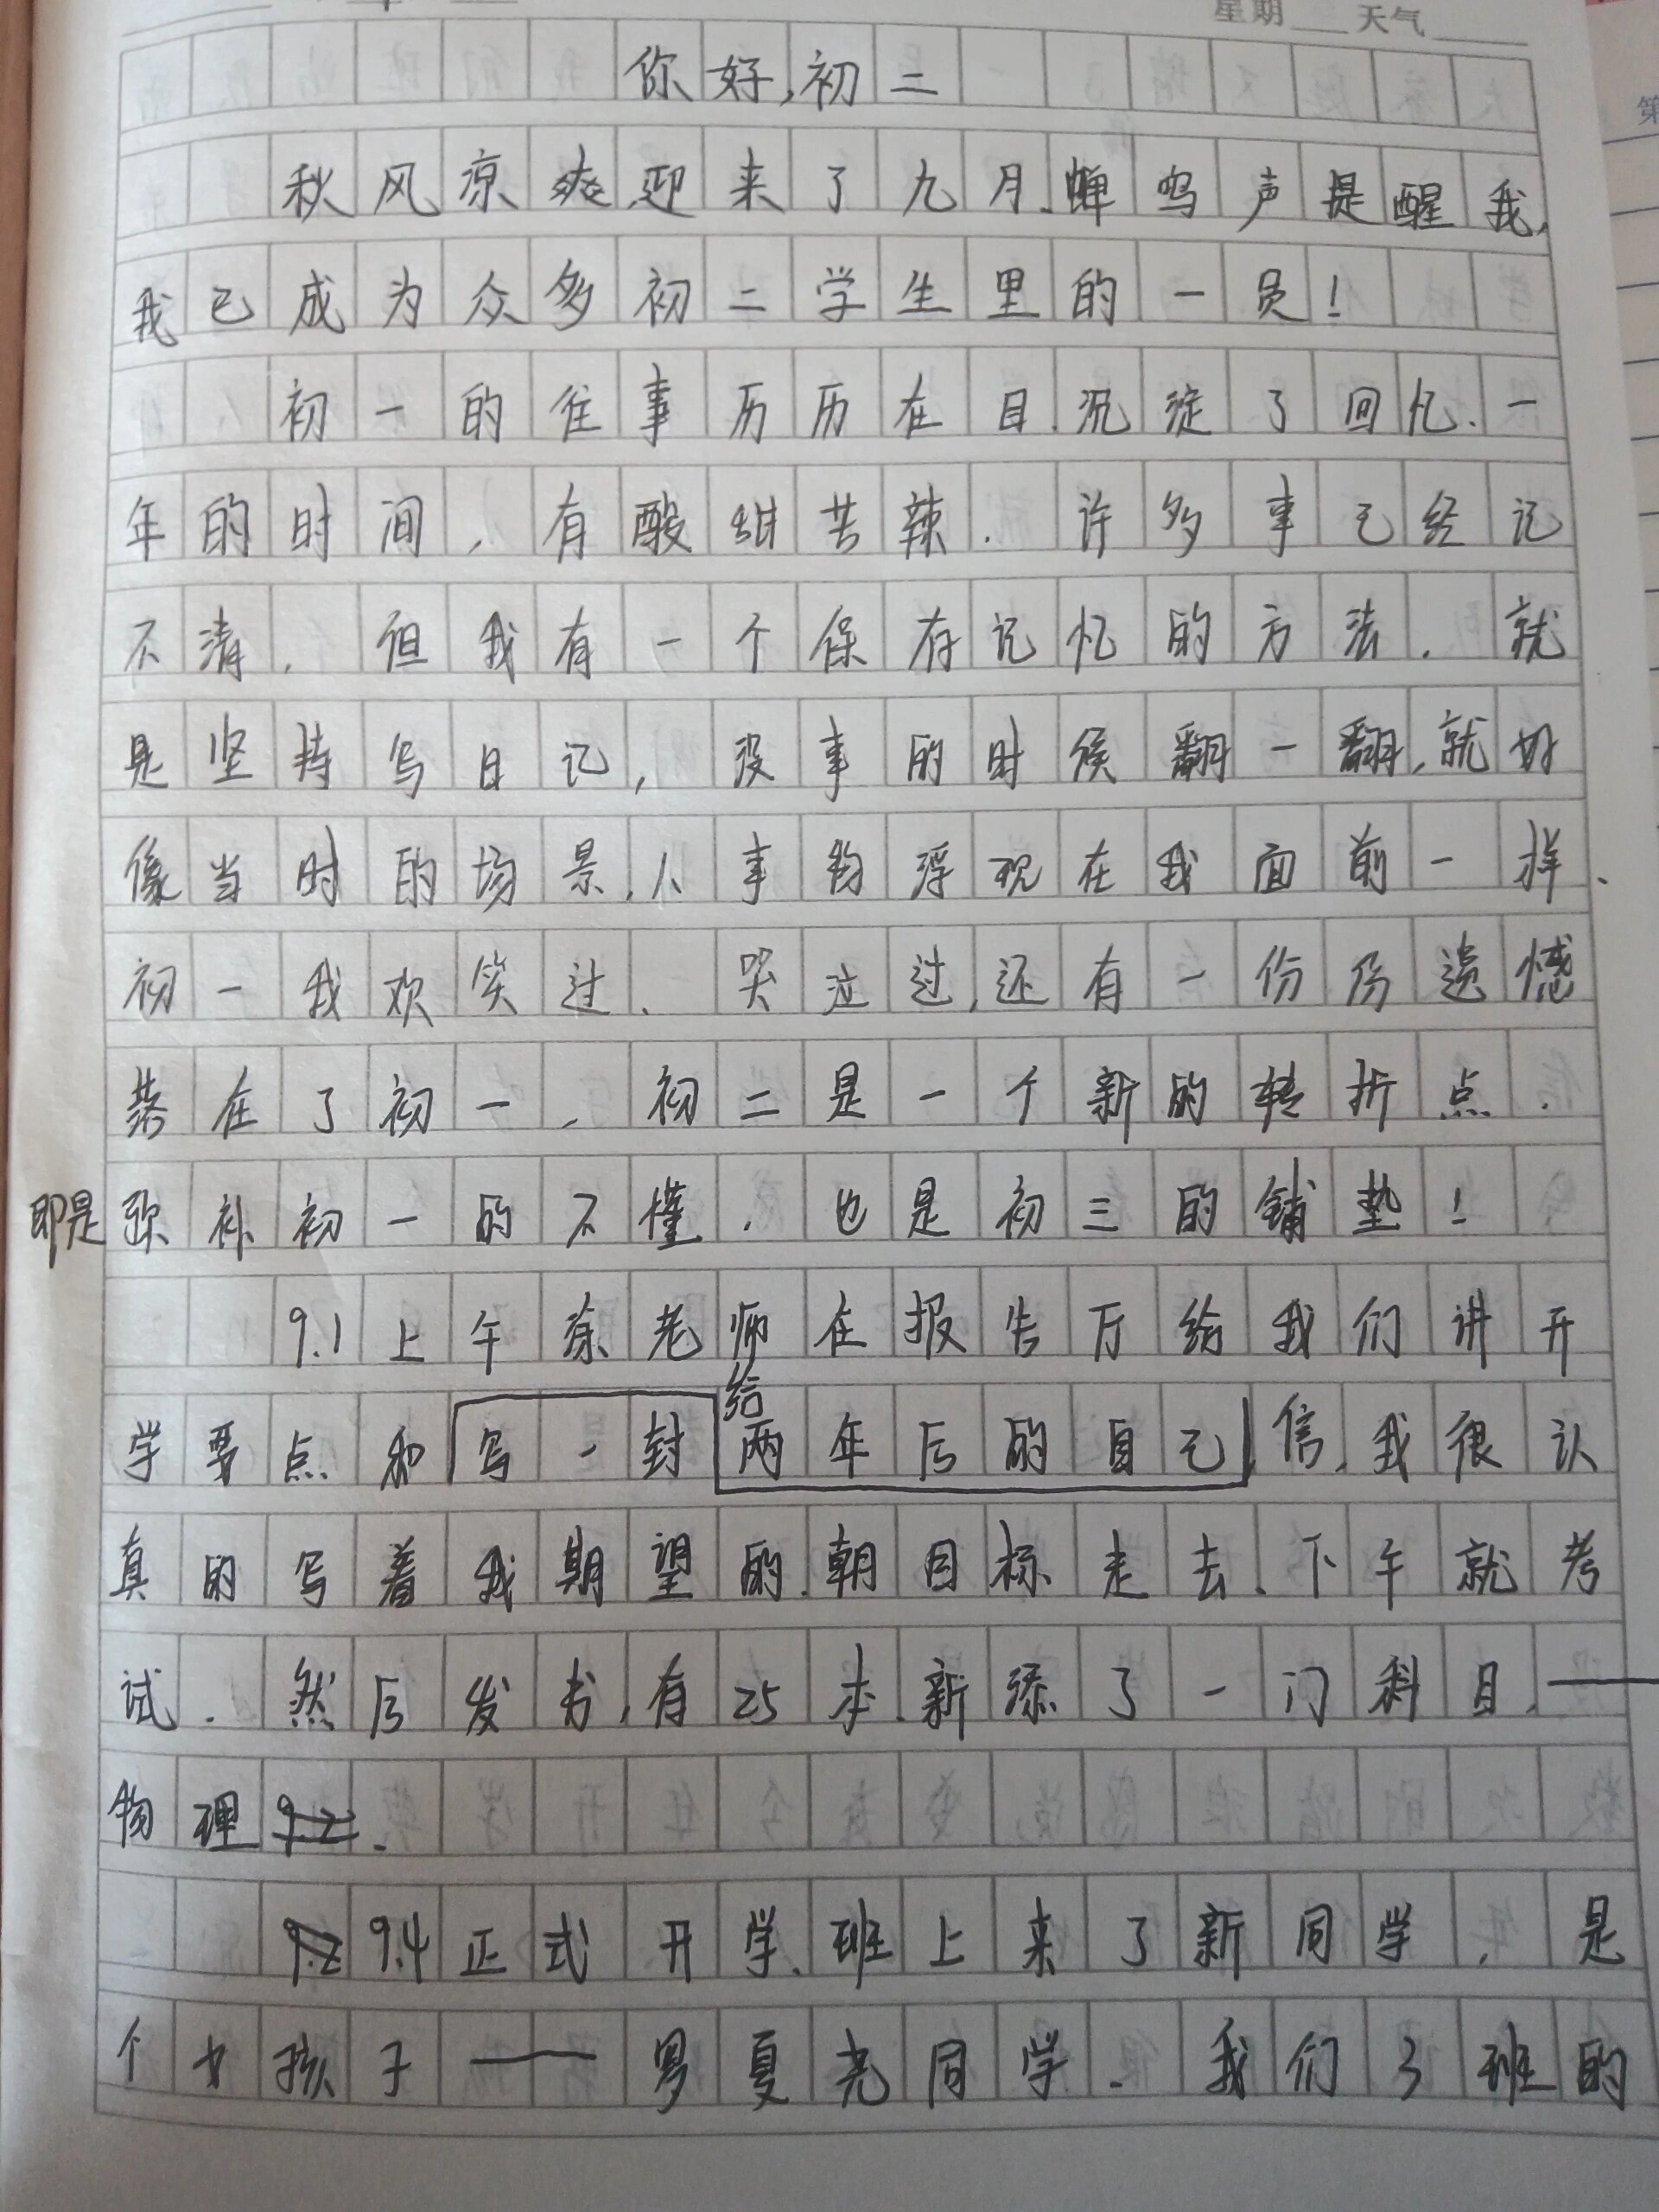 星期 天气
你好,初二
秋风凉爽,迎来了九月.蝉鸣声提醒我,
我已成为众多初二学生里的一员!
初一的往事历历在目.沉淀了回忆.一
年的时间,有酸甜苦辣.许多事已经记
不清,但我有一个保存记忆的方法.就
是坚持写日记,没事的时候翻一翻,就好
像当时的场景,人事物浮现在我面前一样.
初一我欢笑过.哭泣过,还有一份份遗憾
落在了初一,初二是一个新的转折点.
即是弥补初一的不懂.也是初三的铺垫!
9.1上午 老师在报告厅给我们讲开
学要点和写一封给两年后的自己信.我很认
真的写着我期望的.朝目标走去.下午就考
试.然后发书,有25本.新添了一门科目.——
物理9.2.
9.2 9.4正式开学.班上来了新同学,是
个女孩子——罗夏尧同学.我们3班的
第